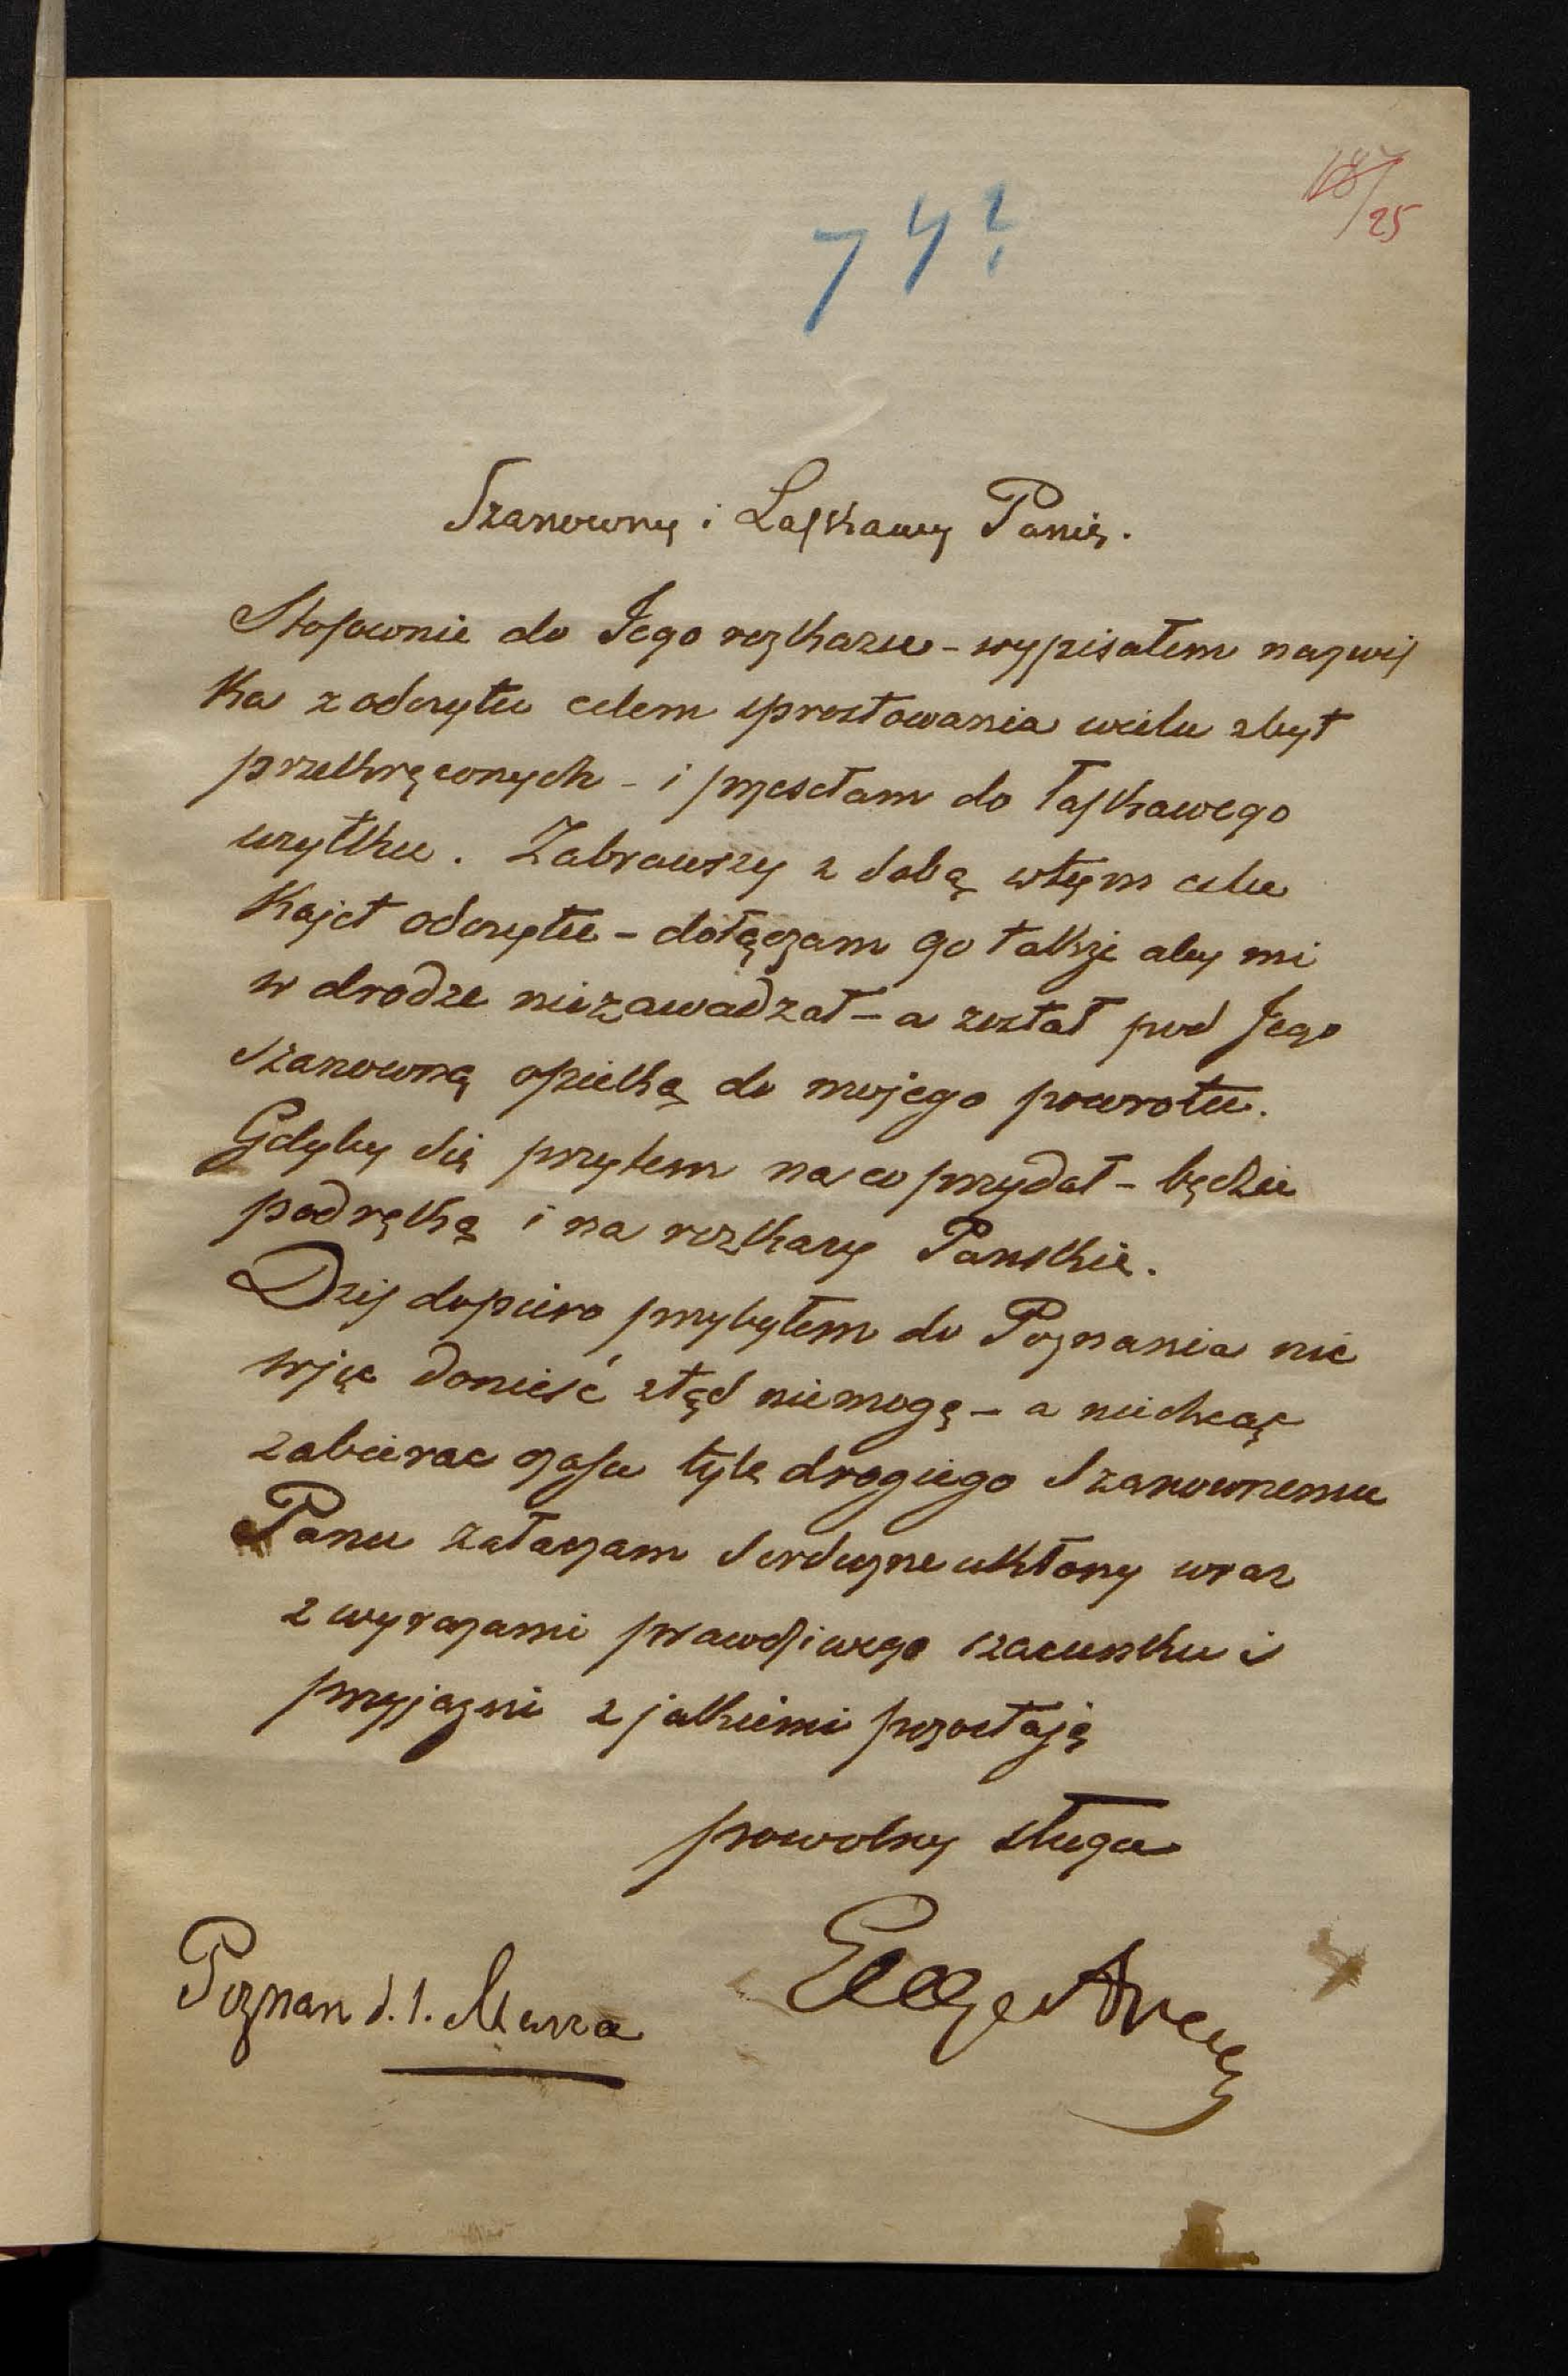 25
74?
Szanowny i Łaskawy Panie.
Stosownie do Jego rozkazu - wypisałem nazwis
ka z odczytu celem sprostowania wielu zbyt
przekręconych - i przesełam do łaskawego
użytku. Zabrawszy z sobą wtym celu
Kajet odczytu - dołączam go także aby mi
w drodze niezawadzał - a został pod Jego
szanowną opieką do mojego powrotu.
Gdyby się przytem na co przydał - będzie
podręką i na rozkazy Panskie.
Dziś dopiero przybyłem do Poznania nic
więc donieść ztąd niemogę - a niechcąc
zabierac czasu tyle drogiego Szanownemu
Panu załaczam serdeczne ukłony wraz
z wyrazami prawdziwego szacunku i
przyjazni z jakiemi pozostaję
powolny sługa
Poznan d. 1. Marca